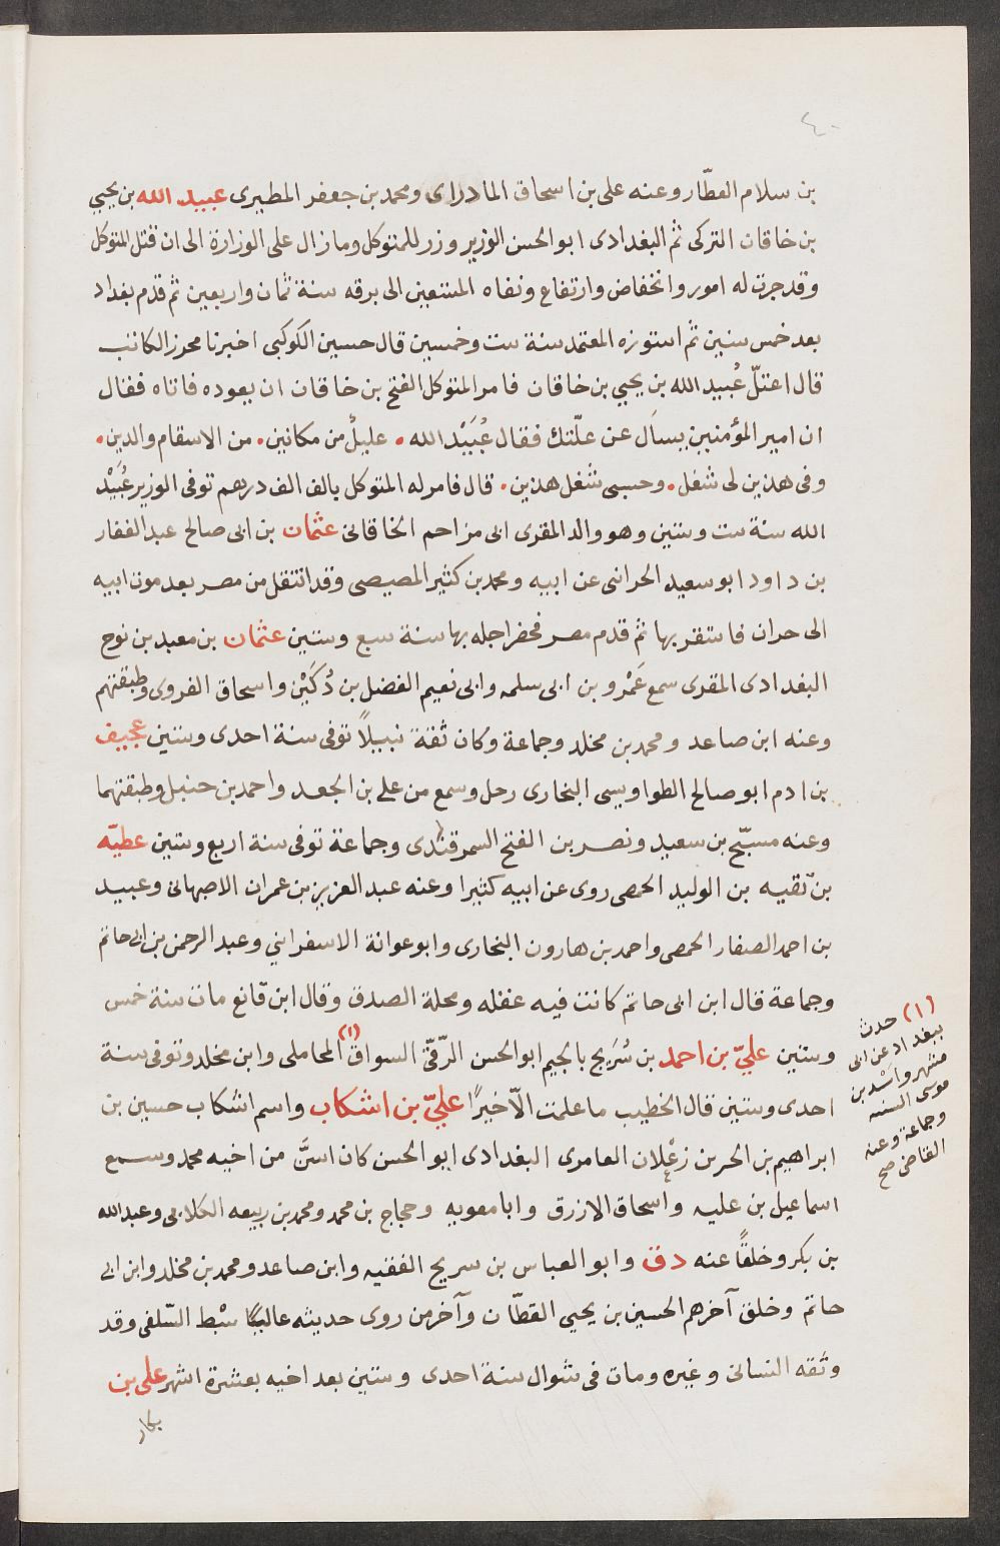 ٤٠
بن سلام العطّار وعنه على بن اسحاق المادراى ومحمد بن جعفر المطيرى عبيد الله بن يحيي
بن خاقان التركى ثم البغدادى ابو الحسن الوزير وزر للمتوكل وما زال على الوزارة الى ان قتل المتوكل
وقد جرت له امور وانخفاض وارتفاع ونفاه المستعين الى برقه سنة ثمان واربعين ثم قدم بغداد
بعد خمس سنين ثم استوزه المعتمد سنة ست وخمسين قال حسين الكوكبى اخبرنا محرز الكاتب
قال اعتلّ عُبيد الله بن يحيي بن خاقان فامر المتوكل الفتح بن خاقان ان يعوده فاتاه فقال
ان امير المؤمنين يسأل عن علّتك فقال عُبَيْد الله • عليلٌ من مكانين • من الاسقام والدين •
وفى هذين لى شغل • وحسبى شغل هذين • قال فامر له المتوكل بالف الف درهم توفى الوزير عُبَيْد
الله سنة ست وستين وهو والد المقرى ابى مزاحم الخاقانى عثمان بن ابى صالح عبد الغفار
بن داود ابو سعيد الحرانى عن ابيه ومحمد بن كثير المصيصى وقد انتقل من مصر بعد موت ابيه
الى حران فاستقر بها ثم قدم مصر فحضر اجله بها سنة سبع وستين عثمان بن معبد بن نوح
البغدادى المقرى سمع عَمْرو بن ابى سلمه وابى نعيم الفضل بن دُكَيْن واسحاق الفروى وطبقتهم
وعنه ابن صاعد ومحمد بن مخلد وجماعة وكان ثقة نبيلاً توفى سنة احدى وستين عجيف
بن ادم ابو صالح الطواويسى البخارى رحل وسمع من على بن الجعد واحمد بن حنبل وطبقتهما
وعنه مسبّح بن سعيد ونصر بن الفتح السمرقندى وجماعة توفى سنة اربع وستين عطيّه
بن تقيه بن الوليد الحمصى روى عن ابيه كثيرا وعنه عبد العزيز بن عمران الاصبهانى وعبيد
بن احمد الصفار الحمصى واحمد بن هارون البخارى وابو عوانة الاسفراينى وعبد الرحمن بن ابى حاتم
وجماعة قال ابن ابى حاتم كانت فيه غفله ومحلة الصدق وقال ابن قانع مات سنة خمس
وستين عليّ بن احمد بن سُرَيج بالجيم ابو الحسن الرّقىّ السواق (١) المحاملى وابن مخلد وتوفى سنة
احدى وستين قال الخطيب ما علمت الّا خيرًا عليّ بن اشكاب واسم اشكاب حسين بن
ابراهيم بن الحر بن زعْلان العامرى البغدادى ابو الحسن كان اسنَّ من اخيه محمد وسمع
اسماعيل بن عليه واسحاق الازرق وابا معويه وحجاج بن محمد ومحمد بن ربيعه الكلابى وعبد الله
بن بكر وخلقًا عنه دق وابو العباس بن سريج الفقيه وابن صاعد ومحمد بن مخلد وابن ابى
حاتم وخلق آخرهم الحسين بن يحيي القطّان وآخر من روى حديثه عاليًا سْبط السّلفى وقد
وثقه النسائى وغيره ومات فى شوال سنة احدى وستين بعد اخيه بعشرة اشهر على بن
بكار
(١) حدث
ببغداد عن ابى
مسهر واسْد بن
موسى السنه
وجماعة وعنه
القاضى صح